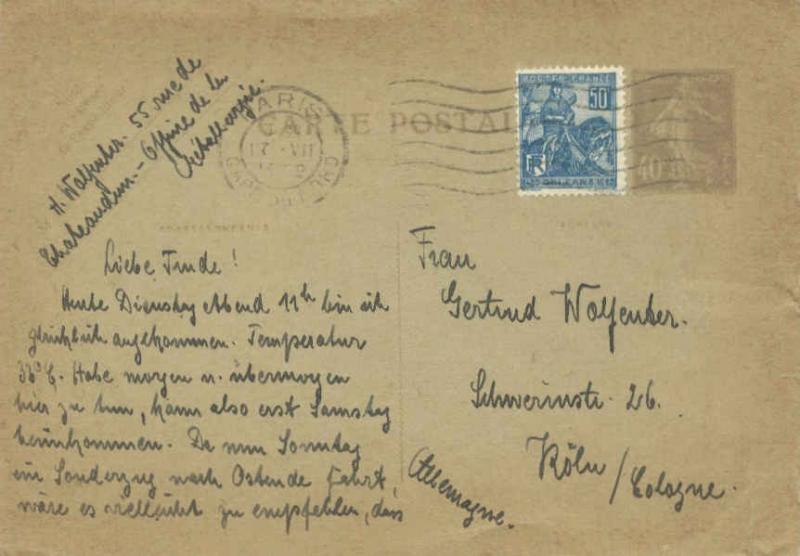 H. Wolfenter. 55 rue de
Chateaudun. - Office de la
PARIS
17 - VII
CARTE POSTALE
POSTES FRANCE
50
RF
ORLEANS
40
Liebe Trude!
Heute Dienstag Abend 11h bin ich
glücklich angekommen. Temperatur
33° C. Habe morgen u. übermorgen
hier zu tun, kann also erst Samstag
heimkommen. Da nun Sonntag
ein Sonderzug nach Ostende fährt,
wäre es vielleicht zu empfehlen, dass
Frau
Gertrud Wolfenter.
Schwerinstr. 26.
Köln / Cologne.
Allemagne.